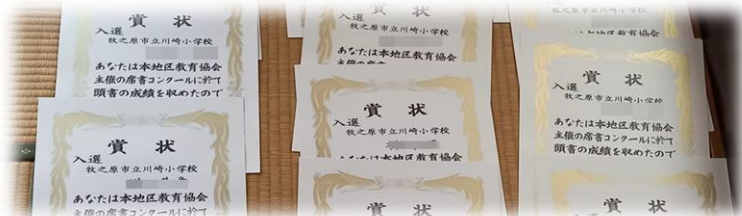 賞状
入選
牧之原市立川崎小学校
あなたは本地区教育協会
主催の席書コンクールに於て
頭書の成績を収めたので
賞状
入選
牧之原市立川崎小学校
あなたは本地区教育協会
主催の席書コンクールに於て
賞状
入選
牧之原市立川崎小学校
あなたは本地区教育協会
賞状
入選
牧之原市立川崎小学校
あなたは本地区教育協会
賞状
賞状
入選
牧之原市立川崎小学校
あなたは本地区教育協会
主催の席書コンクールに於て
頭書の成績を収めたので
賞状